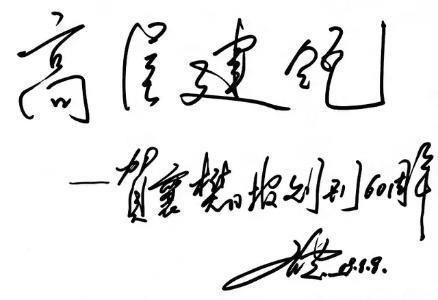 高屋建瓴
——贺襄樊日报创刊60周年